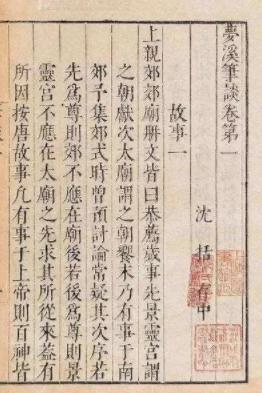 夢溪筆談卷第一
沈括存中
故事一
上親郊郊廟冊文皆曰恭薦歲事先景靈宮謂
之朝獻次太廟謂之朝饗末乃有事于南
郊予集郊式時曾預討論常疑其次序若
先為尊則郊不應在廟後若後為尊則景
靈宮不應在太廟之先求其所從來蓋有
所因按唐故事凢有事于上帝則百神皆